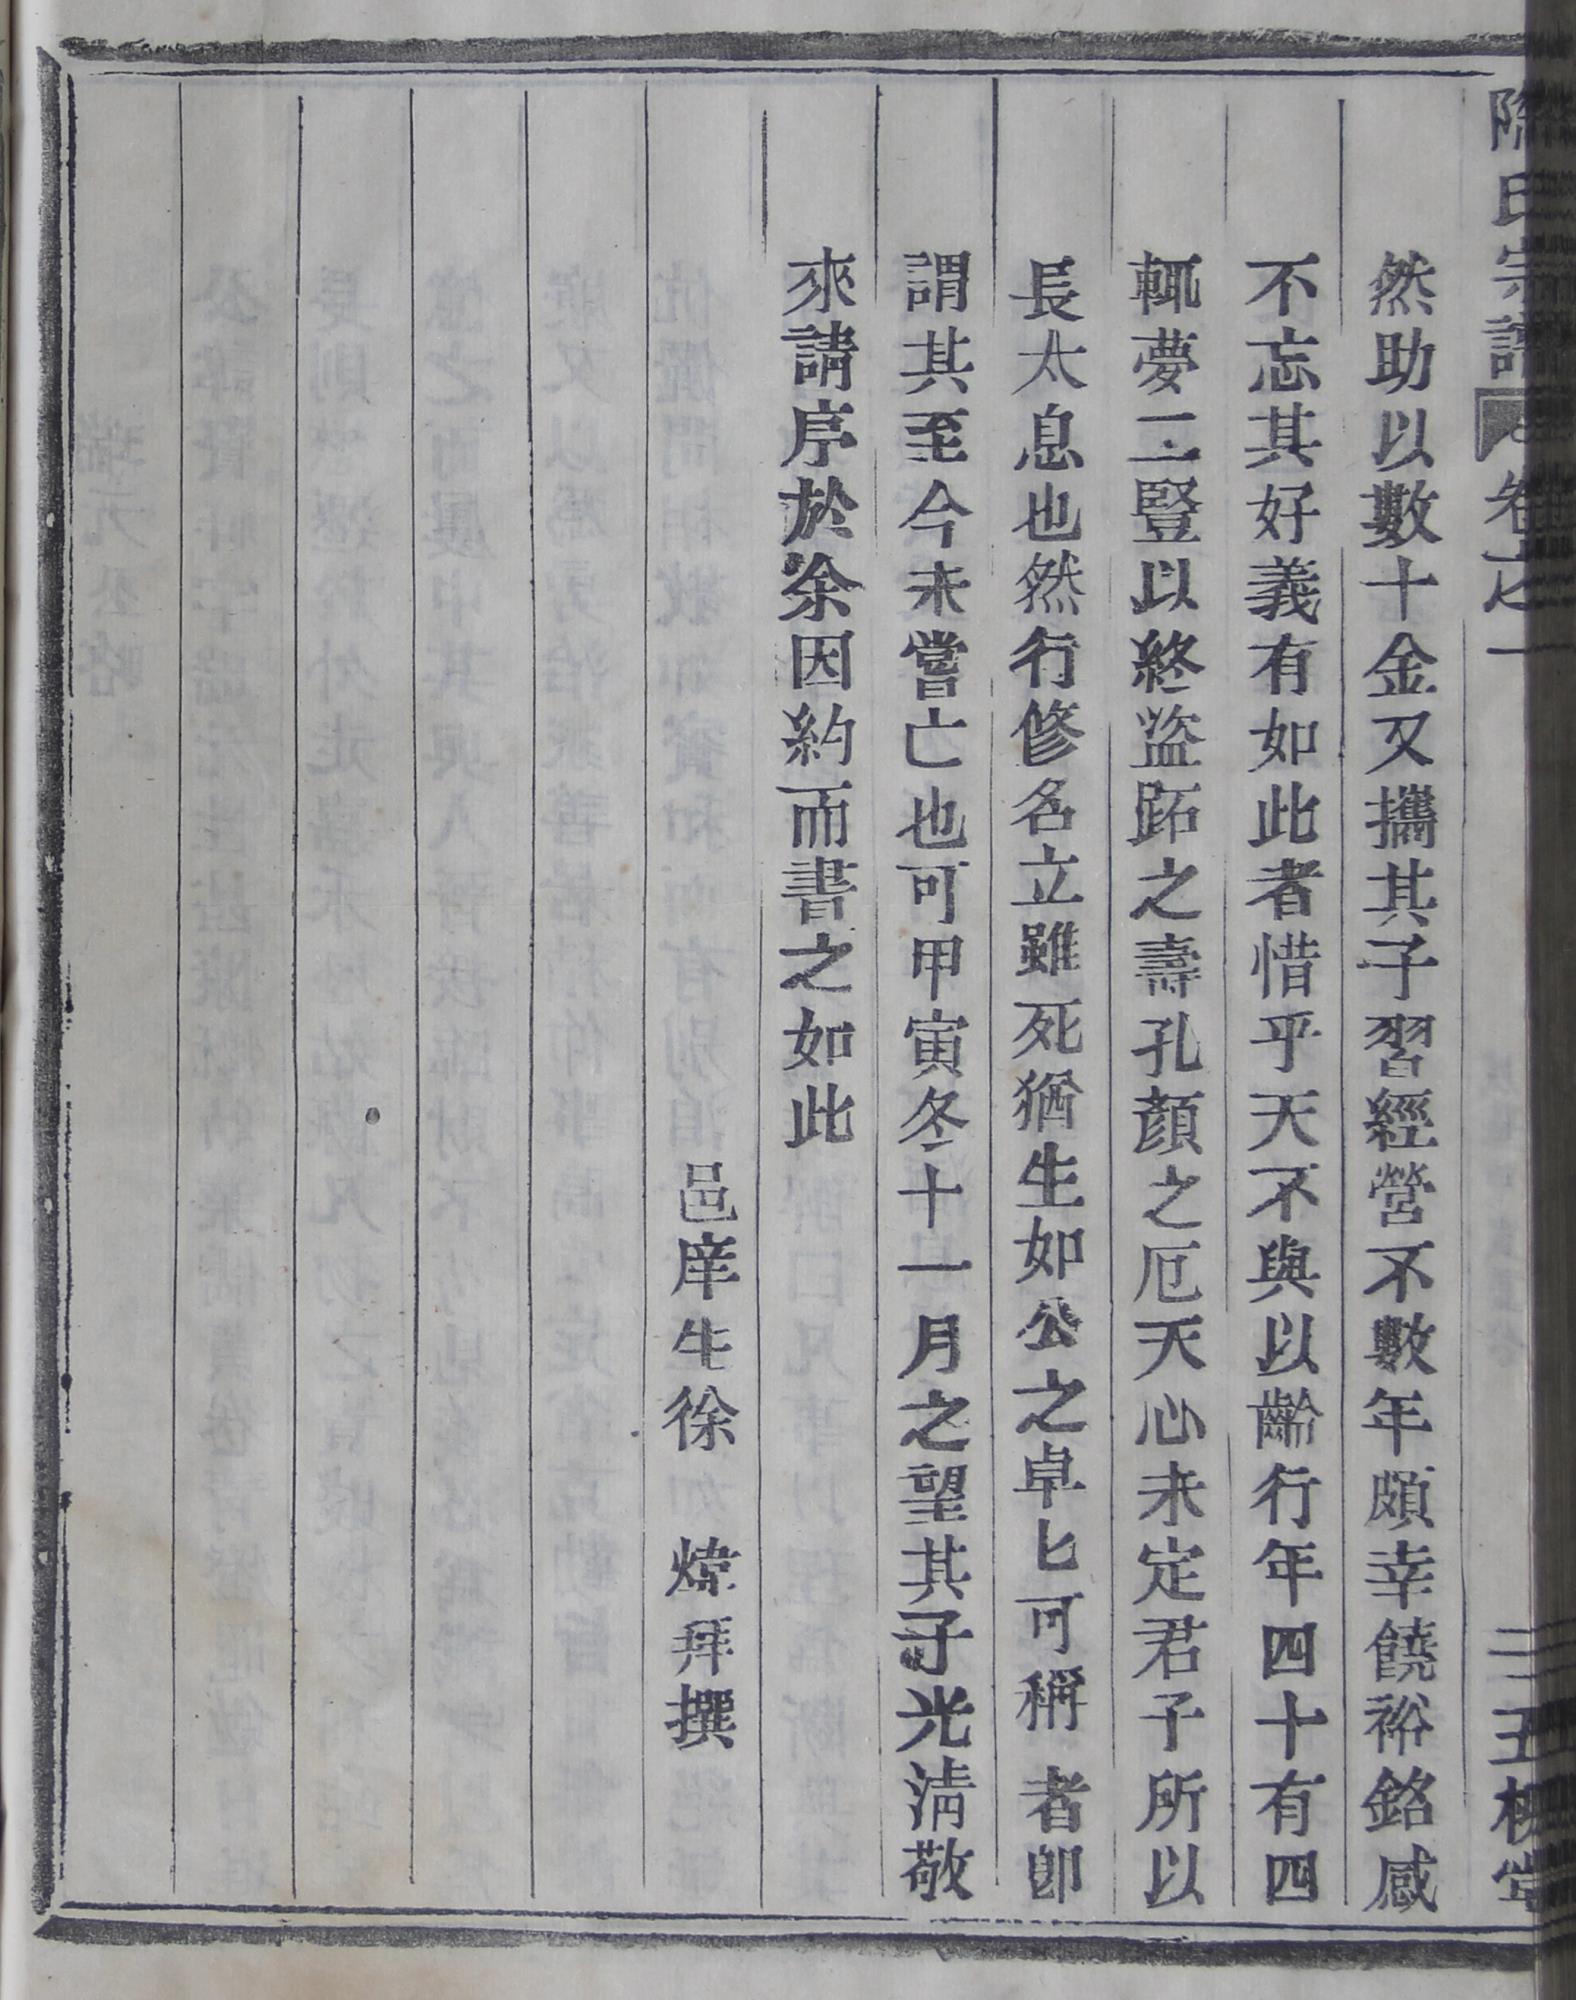 氏宗譜 卷之一 五 堂
然助以數十金又攜其子習經營不數年頗幸饒裕銘感
不忘其好義有如此者惜乎天不與以齡行年四十有四
輒夢二豎以終盜跖之壽孔顏之厄天心未定君子所以
長太息也然行修名立雖死猶生如公之卓匕可稱者卽
謂其至今未嘗亡也可甲寅冬十一月之望其子光淸敬
來請序於余因約而書之如此
邑庠生徐 煒拜撰